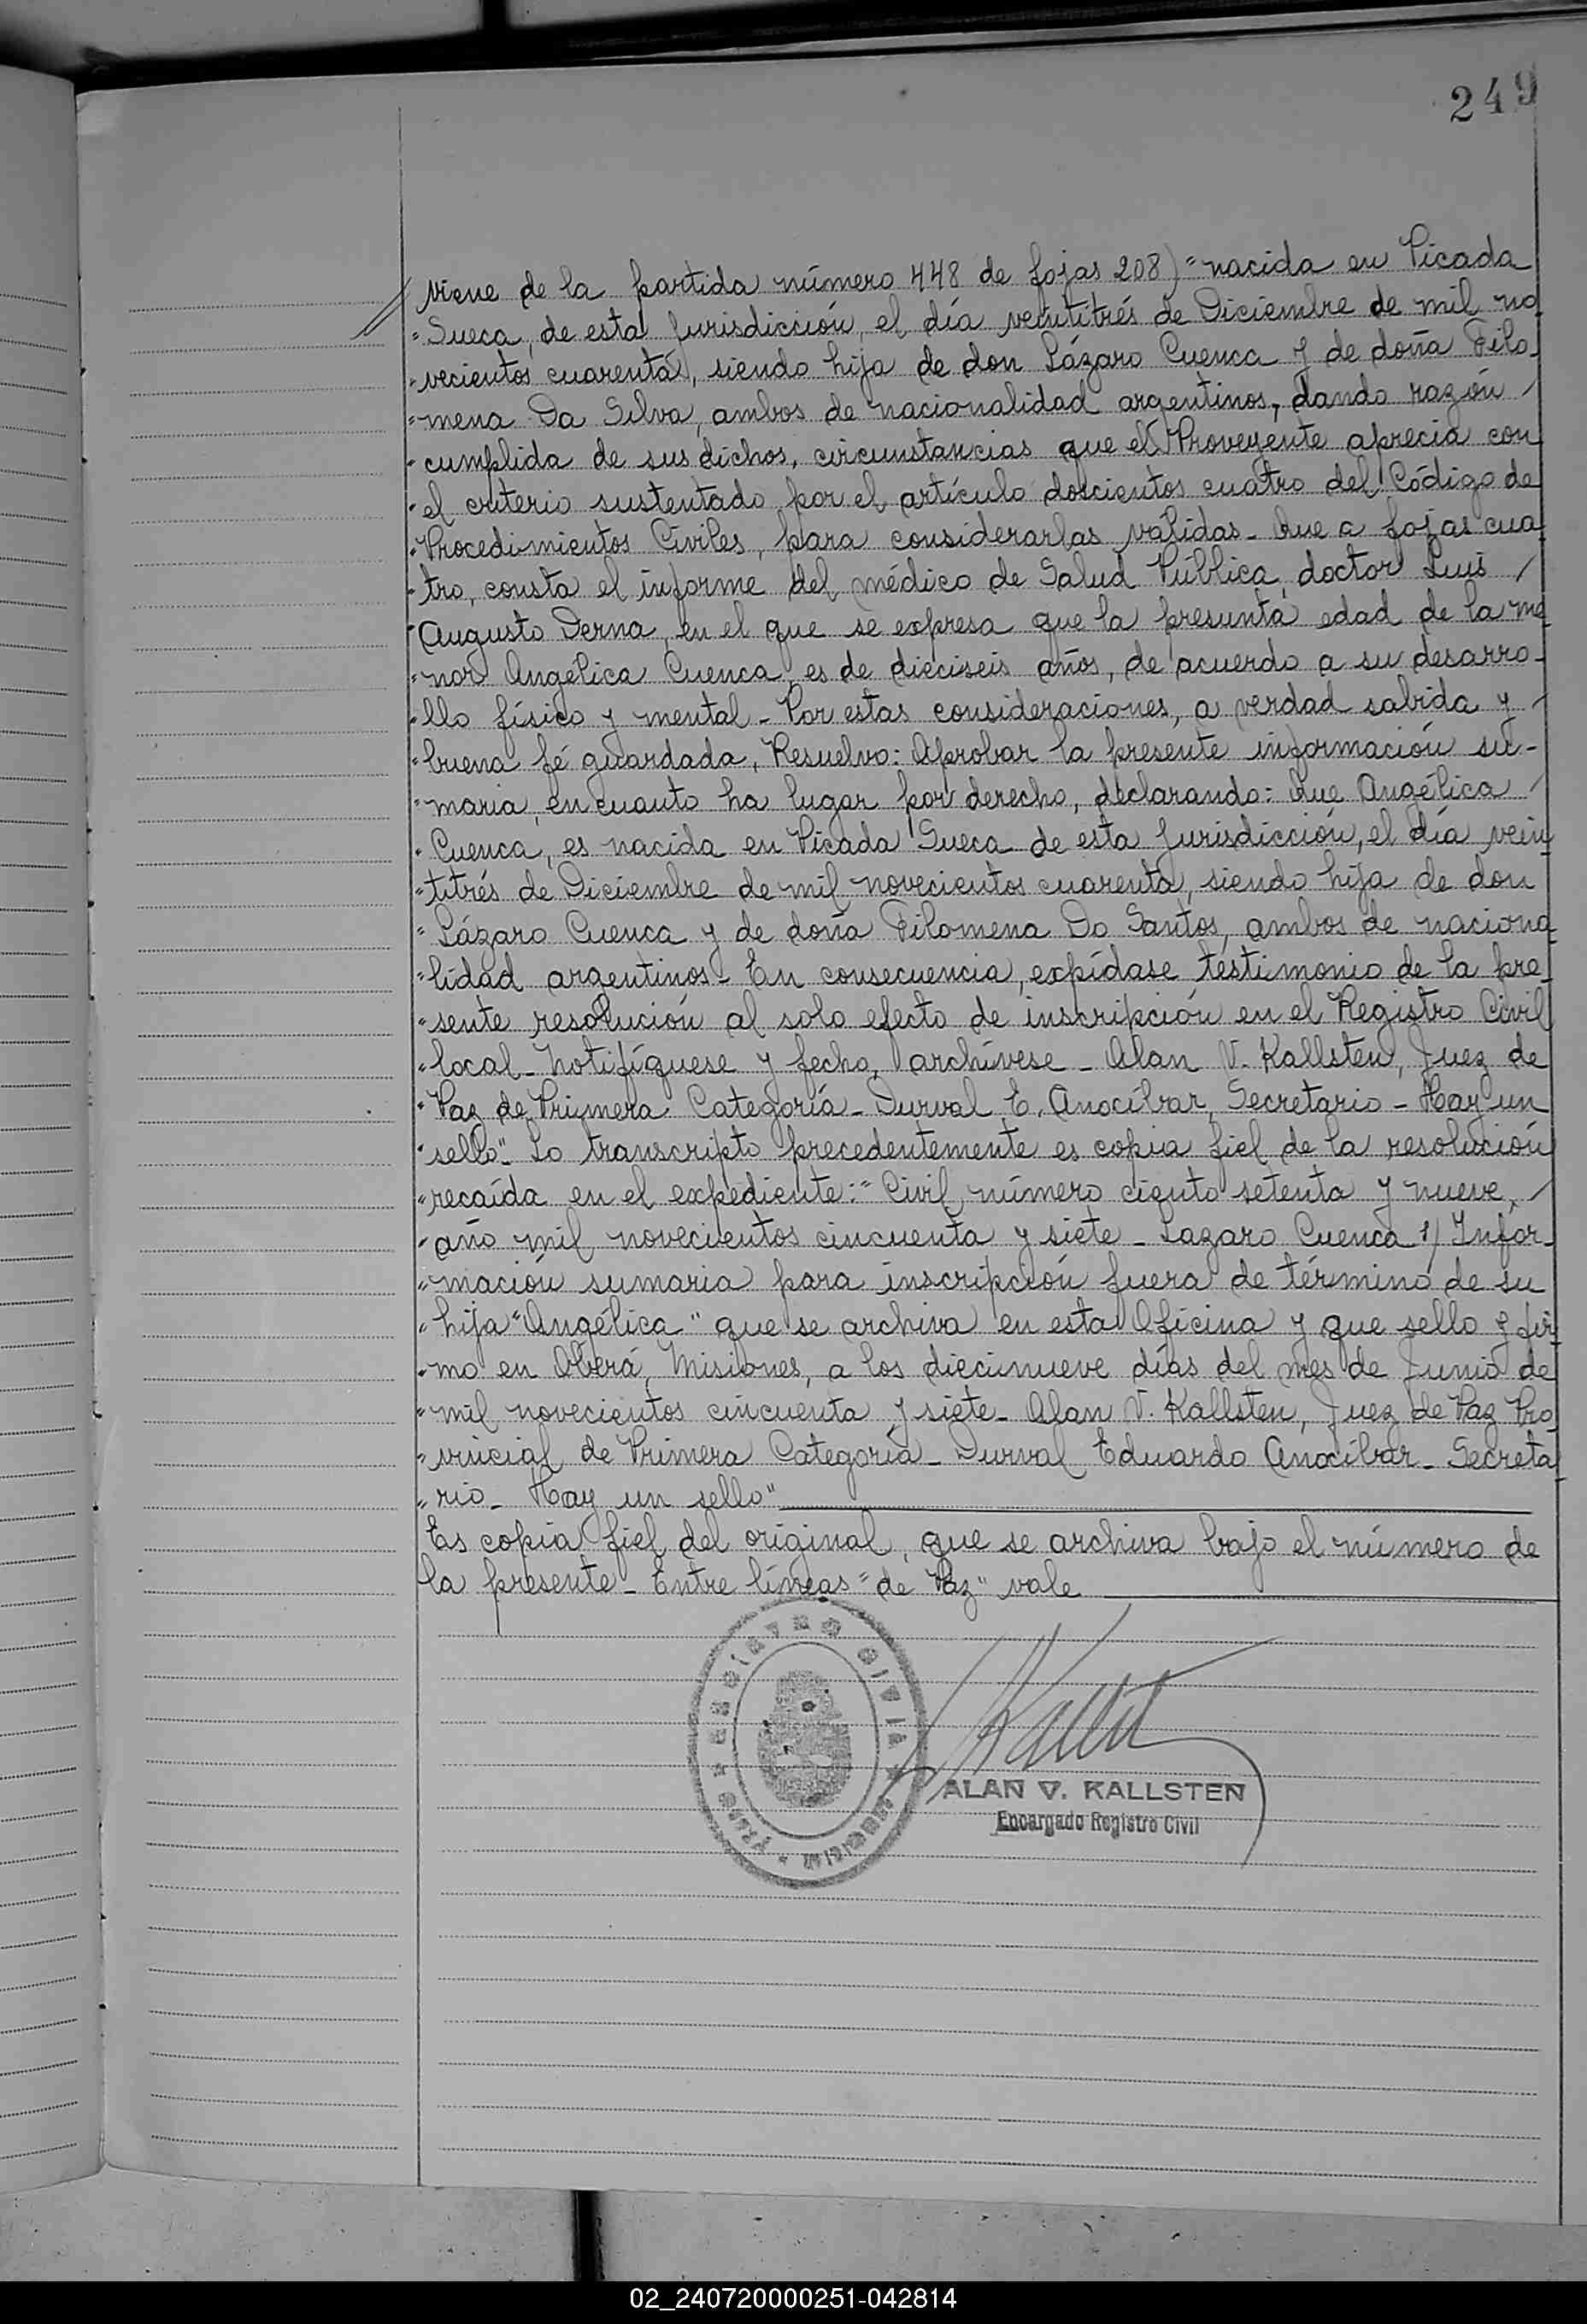 249
Viene de la partida número 448 de fojas 208) "nacida en Picada
"Sueca, de esta Jurisdicción, el día veintitrés de Diciembre de mil no
"vecientos cuarenta, siendo hija de don Lázaro Cuenca y de doña Filo-
"mena Da Silva, ambos de nacionalidad argentinos, dando razón /
"cumplida de sus dichos, circunstancias que el Proveyente aprecia con
"el criterio sustentado por el artículo doscientos cuatro del Código de
"Procedimientos Civiles, para considerarlas válidas_ Que a fojas cua
"tro, consta el informe del médico de Salud Pública, doctor Luis /
"Augusto Derna, en el que se expresa que la presunta edad de la me
"nor Angélica Cuenca, es de dieciseis años, de acuerdo a su desarro-
"llo físico y mental_ Por estas consideraciones, a verdad sabida y /
"buena fé guardada, Resuelvo: Aprobar la presente información su-
"maria, en cuanto ha lugar por derecho, declarando: Que Angélica /
"Cuenca, es nacida en Picada Sueca de esta Jurisdicción, el día vein
"titrés de Diciembre de mil novecientos cuarenta, siendo hija de don
"Lázaro Cuenca y de doña Filomena Do Santos, ambos de naciona
"lidad argentinos_ En consecuencia, expídase testimonio de la pre
"sente resolución al solo efecto de inscripción en el Registro Civil
"local_ Notifíquese y fecho, archívese_ Alan V. Kallsten, Juez de
"Paz de Primera Categoría_ Durval E. Anocíbar, Secretario_ Hay un
"sello"_ Lo transcripto precedentemente es copia fiel de la resolución
"recaída en el expediente: "Civil número ciento setenta y nueve, /
"año mil novecientos cincuenta y siete_ Lazaro Cuenca s/ Infor-
"mación sumaria para inscripción fuera de término de su
"hija "Angélica" que se archiva en esta Oficina y que sello y fir
"mo en Oberá, Misiones, a los diecinueve días del mes de Junio de
"mil novecientos cincuenta y siete_ Alan V. Kallsten, Juez de Paz Pro
"vincial de Primera Categoría_ Durval Eduardo Anocíbar_ Secreta
"rio_ Hay un sello"
Es copia fiel del original, que se archiva bajo el número de
la presente_ Entre líneas "de Paz" vale
REGISTRO CIVIL
ALAN V. KALLSTEN
Encargado Registro Civil
02_240720000251-042814